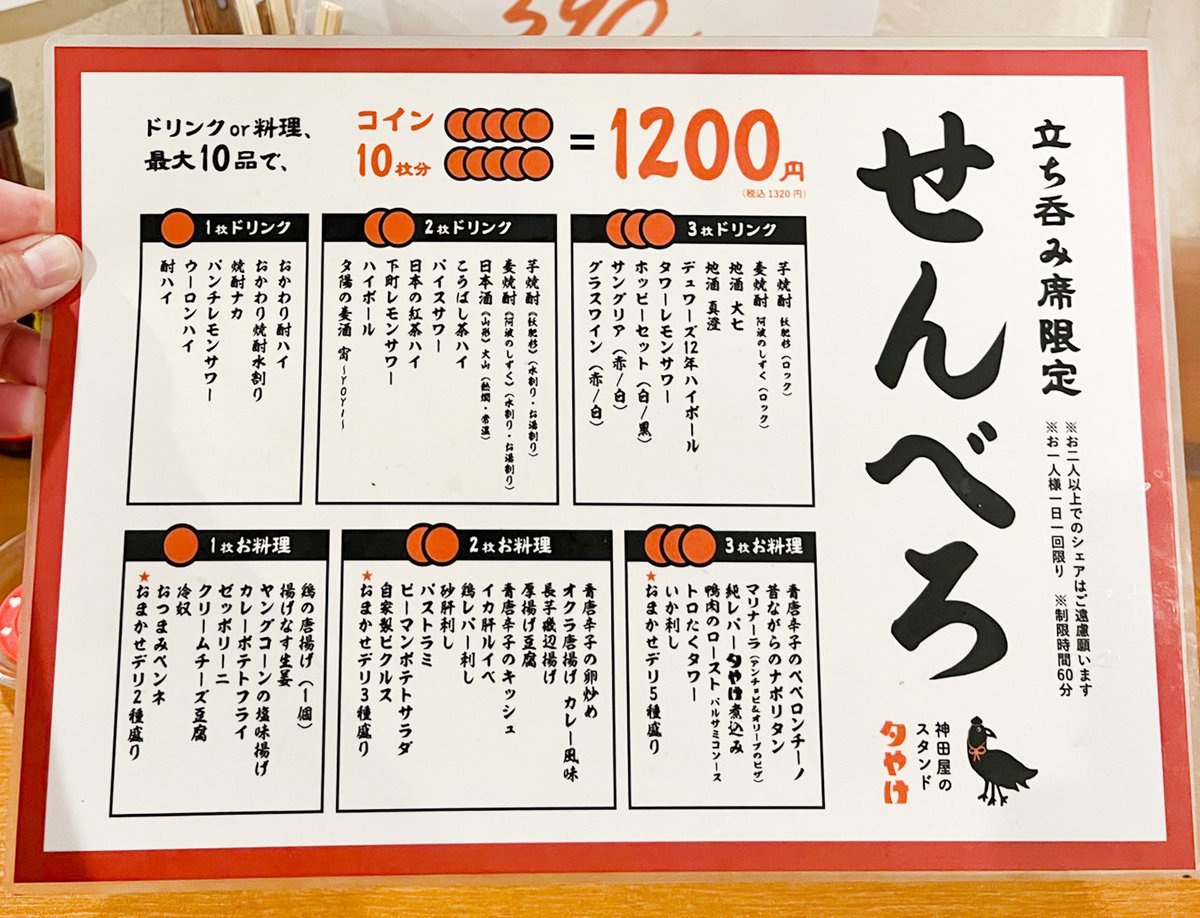 立ち呑み席限定
※お二人以上でのシェアはご遠慮願います
※お一人様一日一回限り ※制限時間60分
せんべろ
神田屋の
スタンド
夕やけ
ドリンクor料理、
最大10品で、
コイン
10枚分
=1200円
(税込1320円)
1枚ドリンク
おかわり酎ハイ
おかわり焼酎水割り
焼酎ナカ
パンチレモンサワー
ウーロンハイ
酎ハイ
2枚ドリンク
芋焼酎(枕肥杉)(水割り・お湯割り)
麦焼酎(阿波のしずく)(水割り・お湯割り)
日本酒(山形)大山(熱燗・常温)
こうばし茶ハイ
バイスサワー
日本の紅茶ハイ
下町レモンサワー
ハイボール
夕陽の麦酒 宵〜YOYI〜
3枚ドリンク
芋焼酎 枕肥杉(ロック)
麦焼酎 阿波のしずく(ロック)
地酒 大七
地酒 真澄
デュワーズ12年ハイボール
タワーレモンサワー
ホッピーセット(白/黒)
サングリア(赤/白)
グラスワイン(赤/白)
1枚お料理
鶏の唐揚げ(1個)
揚げなす生姜
ヤングコーンの塩味揚げ
カレーポテトフライ
ゼッポリーニ
クリームチーズ豆腐
冷奴
おつまみペンネ
★おまかせデリ2種盛り
2枚お料理
青唐辛子の卵炒め
オクラ唐揚げ カレー風味
長芋磯辺揚げ
厚揚げ豆腐
青唐辛子のキッシュ
イカ肝ルイベ
鶏レバー刺し
砂肝刺し
パストラミ
ピーマンポテトサラダ
自家製ピクルス
★おまかせデリ3種盛り
3枚お料理
青唐辛子のペペロンチーノ
昔ながらのナポリタン
マリナーラ(アンチョビ&オリーブのピザ)
純レバー夕やけ煮込み
鴨肉のロースト バルサミコソース
トロたくタワー
いか刺し
★おまかせデリ5種盛り